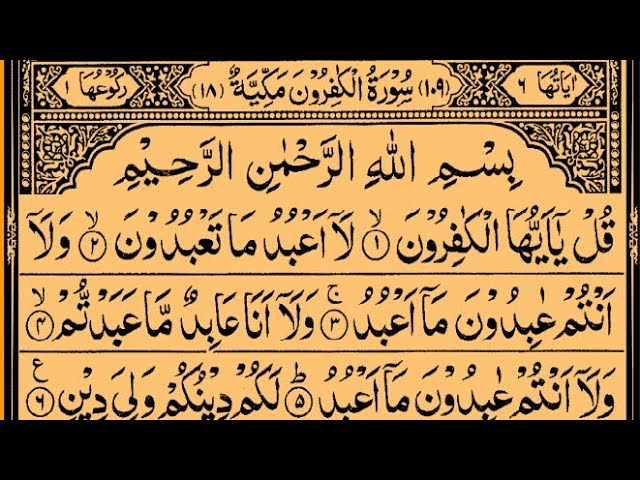 اٰيَاتُهَا ٦ (١٠٩) سُوْرَةُ الْكٰفِرُوْنَ مَكِّيَّةٌ (١٨) رُكُوْعُهَا ١
بِسْمِ اللّٰهِ الرَّحْمٰنِ الرَّحِيْمِ
قُلْ يٰٓاَيُّهَا الْكٰفِرُوْنَ ۙ ١ لَآ اَعْبُدُ مَا تَعْبُدُوْنَ ۙ ٢ وَلَآ
اَنْتُمْ عٰبِدُوْنَ مَآ اَعْبُدُ ۚ ٣ وَلَآ اَنَا عَابِدٌ مَّا عَبَدْتُّمْ ۙ ٤
وَلَآ اَنْتُمْ عٰبِدُوْنَ مَآ اَعْبُدُ ؕ ٥ لَكُمْ دِيْنُكُمْ وَلِيَ دِيْنِ ع ٦